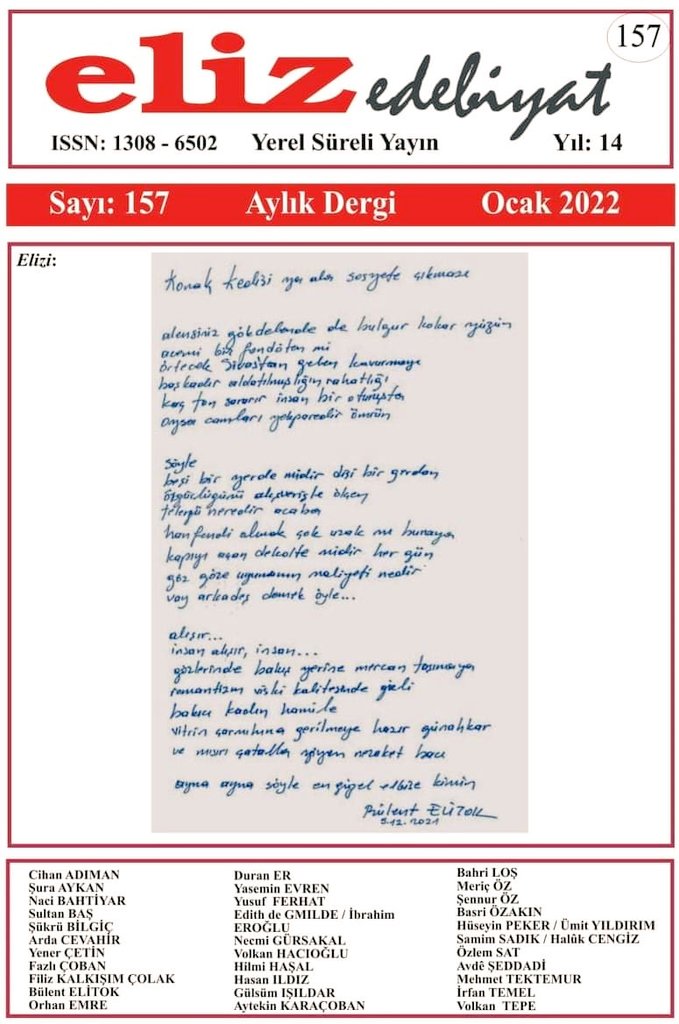 157
eliz edebiyat
ISSN: 1308 - 6502 Yerel Süreli Yayın Yıl: 14
Sayı: 157 Aylık Dergi Ocak 2022
Elizi:
Konak Kedisi ya da sosyete çıkması
gökdelende de bulgur kokar yüzün
acemi bir fondöten mi
örtecek Sivastan gelen kavurmaya
başkadır aldatılmışlığın rahatlığı
kaç ton sararır insan bir oturuşta
oysa camları yekparedir ömrün
söyle
beşi bir yerde midir dişi bir gerdan
özgürlüğünü alışverişle ölçen
nerededir acaba
hanfendi almak çok uzak mı buraya
kapıyı açan dekolte midir her gün
göz göze uyumanın maliyeti nedir
vay arkadaş demek öyle...
alışır...
insan alışır, insan...
gözlerinde bakış yerine mercan taşımaya
romantizm viski kalitesinde gizli
bakıcı kadın hamile
vitrin çarmıhına gerilmeye hazır günahkar
ve mısırı çatalla yiyen nezaket bacı
ayna ayna söyle en güzel elbise kimin
Bülent ELİTOK
5.12.2021
Cihan ADIMAN
Şura AYKAN
Naci BAHTİYAR
Sultan BAŞ
Şükrü BİLGİÇ
Arda CEVAHİR
Yener ÇETİN
Fazlı ÇOBAN
Filiz KALKIŞIM ÇOLAK
Bülent ELİTOK
Orhan EMRE
Duran ER
Yasemin EVREN
Yusuf FERHAT
Edith de GMILDE / İbrahim
EROĞLU
Necmi GÜRSAKAL
Volkan HACIOĞLU
Hilmi HAŞAL
Hasan ILDIZ
Gülsüm IŞILDAR
Aytekin KARAÇOBAN
Bahri LOŞ
Meriç ÖZ
Şennur ÖZ
Basri ÖZAKIN
Hüseyin PEKER / Ümit YILDIRIM
Samim SADIK / Halûk CENGİZ
Özlem SAT
Avdê ŞEDDADİ
Mehmet TEKTEMUR
İrfan TEMEL
Volkan TEPE